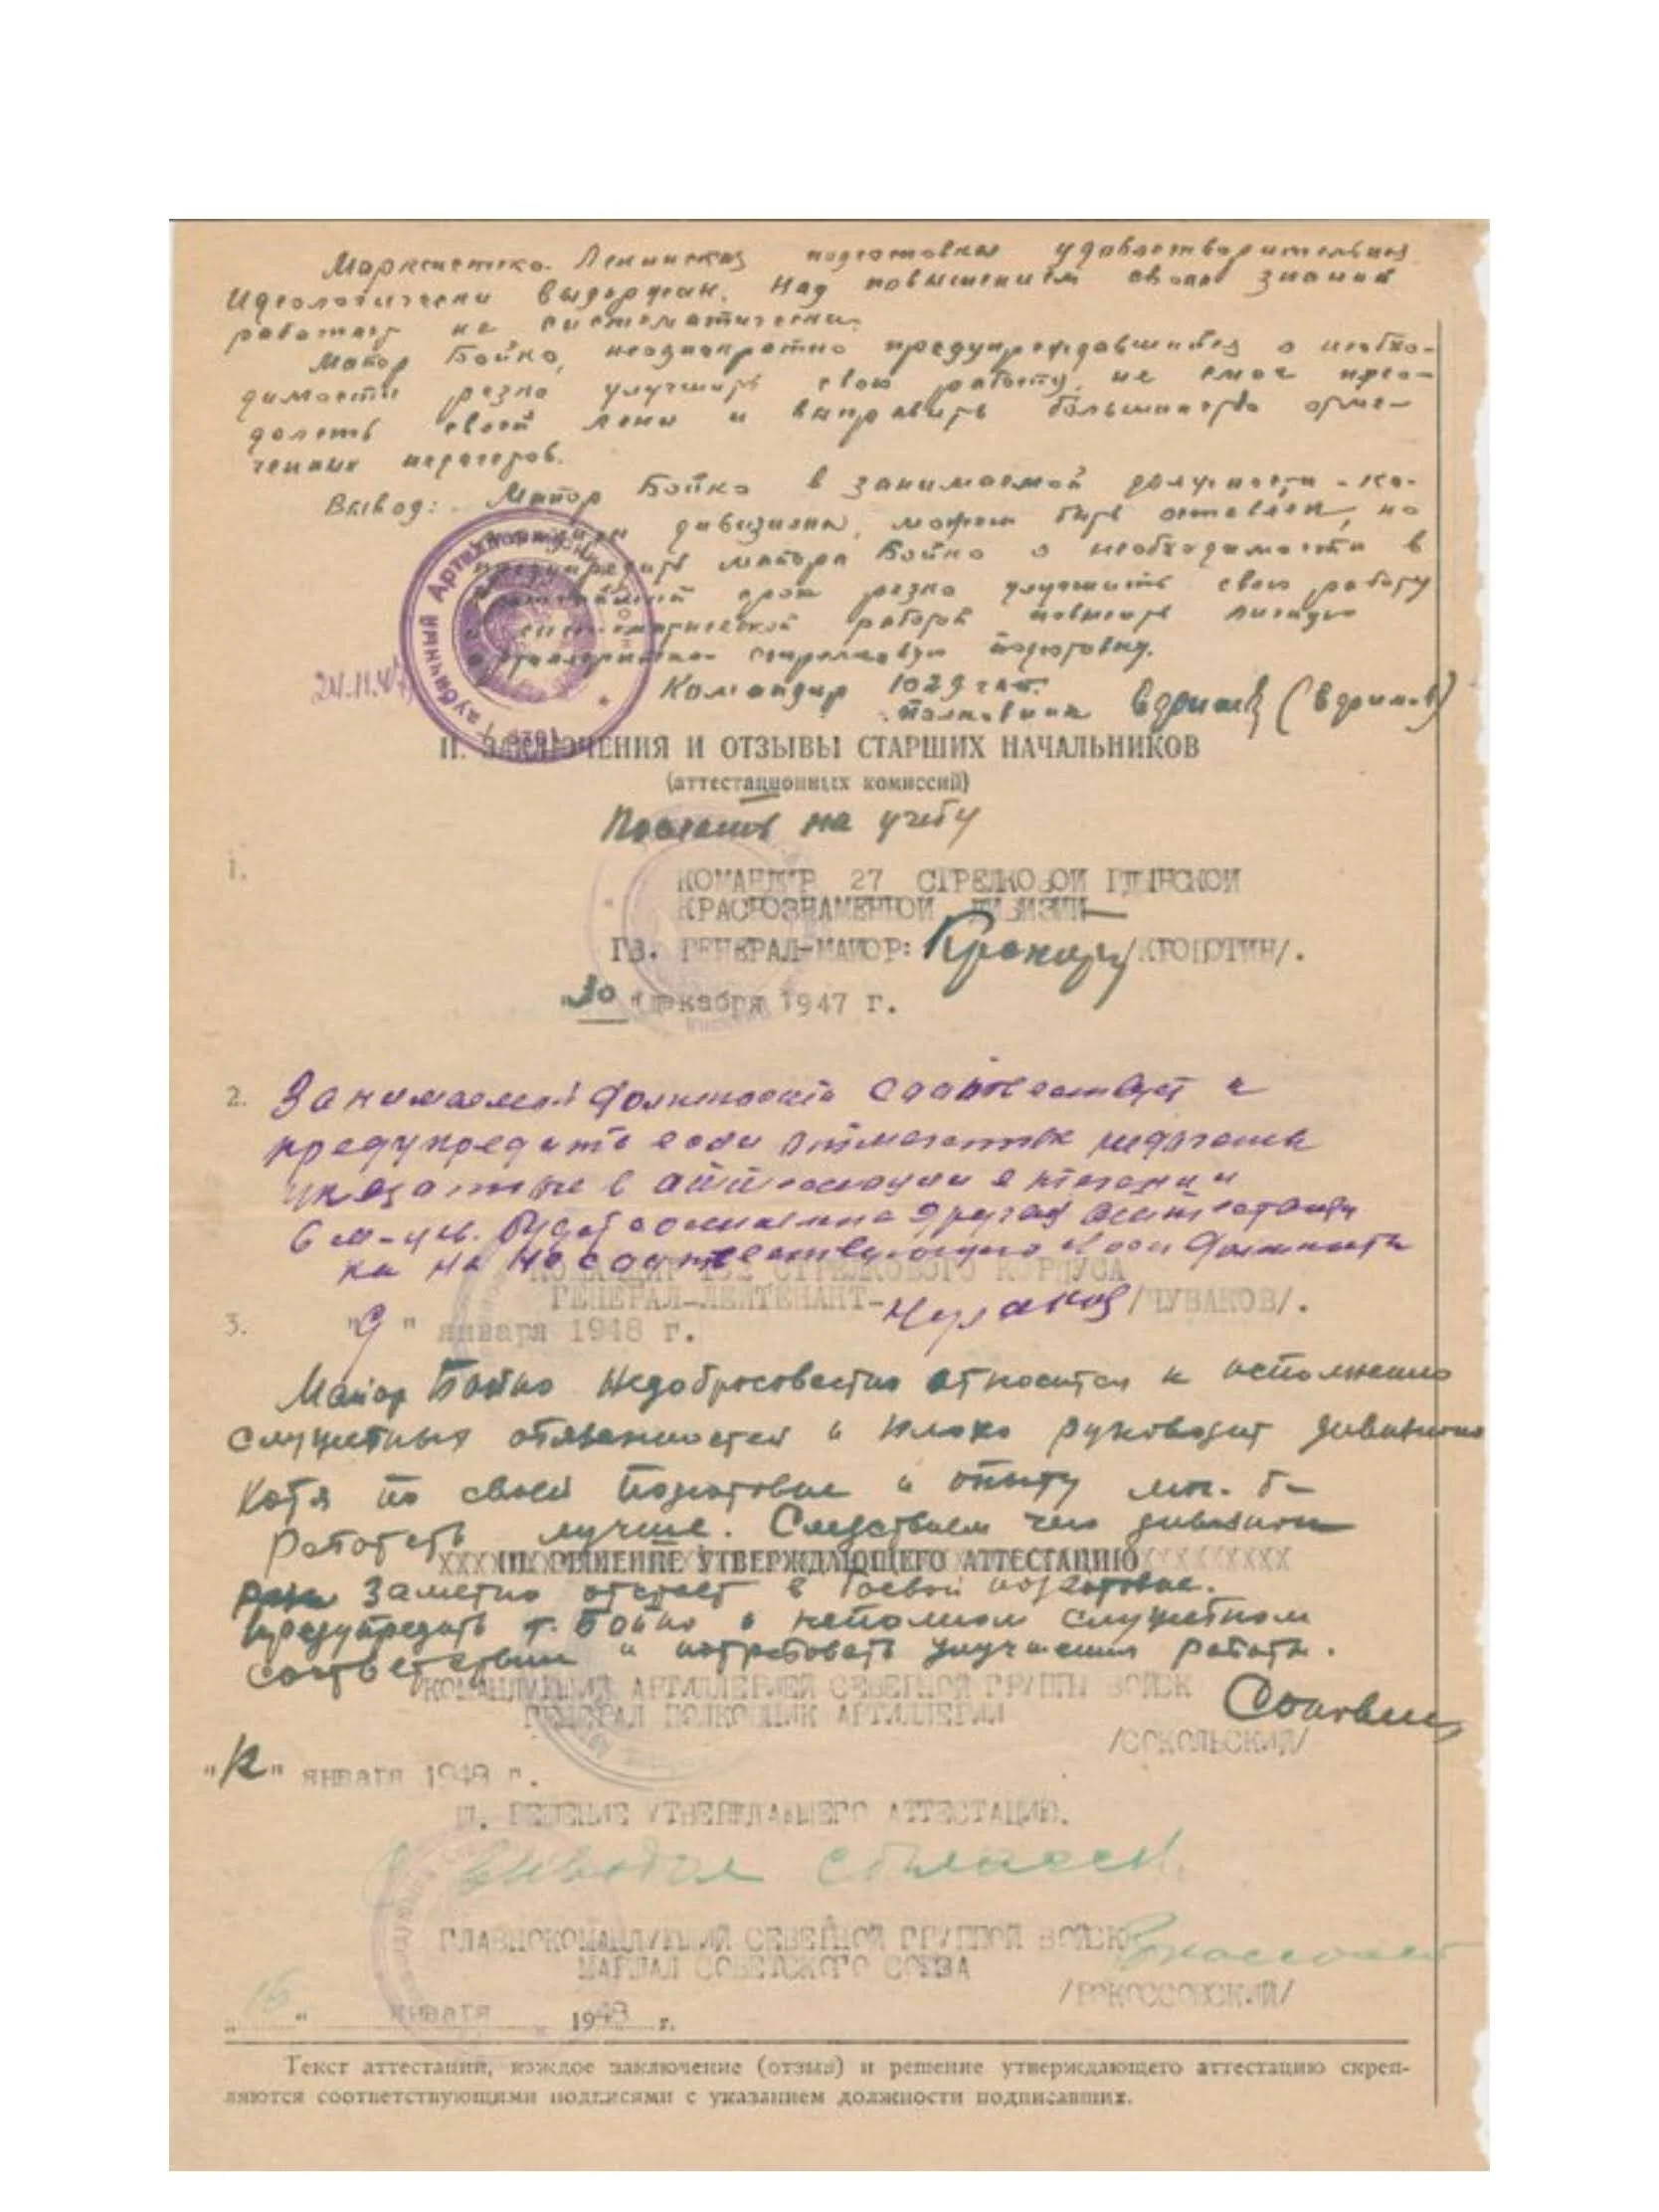 Марксистско-Ленинская подготовка удовлетворительная
Идеологически выдержан. Над повышением своих знаний
работает не систематически.
Майор Бойко, неоднократно предупреждавшийся о необхо-
димости резко улучшить свою работу, не смог прео-
долеть своей лени и выправить большинство отме-
ченных недочетов.
Вывод: Майор Бойко в занимаемой должности - ко-
дивизиона, может быть оставлен, но
предупредить майора Бойко о необходимости в
срок резко улучшить свою работу
систематической работой повысить личную
артиллерийско-стрелковую подготовку.
24.11.47
Командир 1029 гап.
полковник
II. ЗАКЛЮЧЕНИЯ И ОТЗЫВЫ СТАРШИХ НАЧАЛЬНИКОВ
(аттестационных комиссий)
Послать на учебу
1.
КОМАНДИР 27 СТРЕЛКОВОЙ ГДЫНСКОЙ
КРАСНОЗНАМЕННОЙ ДИВИЗИИ
ГВ. ГЕНЕРАЛ-МАЙОР: /КРОПОТИН/.
"30" декабря 1947 г.
2. Занимаемой должности соответствует и
предупредить если отмеченные недочеты
указанные в аттестации в течении
6 м-цев. будет составлена другая аттестация
ка на не соответствующего своей должности
КОМАНДИР 132 СТРЕЛКОВОГО КОРПУСА
ГЕНЕРАЛ-ЛЕЙТЕНАНТ- Чуваков /ЧУВАКОВ/.
3. "9" января 1948 г.
Майор Бойко недобросовестно относится к исполнению
служебных обязанностей и плохо руководит дивизионом
Хотя по своей подготовке и опыту
работать лучше. Следствием чего дивизион
III РЕШЕНИЕ УТВЕРЖДАЮЩЕГО АТТЕСТАЦИЮ
заметно отстает в боевой подготовке.
Предупредить т. Бойко о неполном служебном
соответствии и потребовать улучшения работы.
КОМАНДУЮЩИЙ АРТИЛЛЕРИЕЙ СЕВЕРНОЙ ГРУППЫ ВОЙСК
ГЕНЕРАЛ ПОЛКОВНИК АРТИЛЛЕРИИ
/СОКОЛЬСКИЙ/
"12" января 1948 г.
III. РЕШЕНИЕ УТВЕРЖДАЮЩЕГО АТТЕСТАЦИЮ.
С выводом согласен.
ГЛАВНОКОМАНДУЮЩИЙ СЕВЕРНОЙ ГРУППОЙ ВОЙСК
МАРШАЛ СОВЕТСКОГО СОЮЗА
/РОКОССОВСКИЙ/
"16" января 1948 г.
Текст аттестации, каждое заключение (отзыв) и решение утверждающего аттестацию скреп-
ляются соответствующими подписями с указанием должности подписавших.